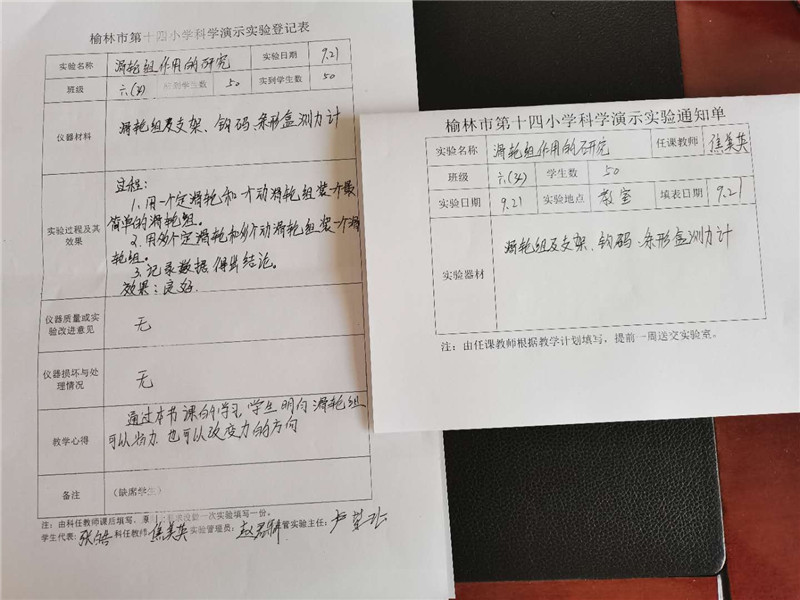 榆林市第十四小学科学演示实验登记表
实验名称 滑轮组作用的研究 实验日期 9.21
班级 六(34) 应到学生数 50 实到学生数 50
仪器材料 滑轮组及支架、钩码、条形盒测力计
实验过程及其效果
过程:
1.用一个定滑轮和一个动滑轮组装一个最
简单的滑轮组。
2.用多个定滑轮和多个动滑轮组装一个滑
轮组。
3.记录数据,得出结论。
效果:良好.
仪器质量或实验改进意见 无
仪器损坏与处理情况 无
教学心得
通过本节课的学习,学生明白滑轮组
可以省力,也可以改变力的方向
备注 (缺席学生)
注:由科任教师课后填写,一次实验填写一份。
学生代表: 科任教师:焦美英 实验管理员: 主管实验主任:
榆林市第十四小学科学演示实验通知单
实验名称 滑轮组作用的研究 任课教师 焦美英
班级 六(34) 学生数 50
实验日期 9.21 实验地点 教室 填表日期 9.21
实验器材 滑轮组及支架、钩码、条形盒测力计
注:由任课教师根据教学计划填写,提前一周送交实验室。